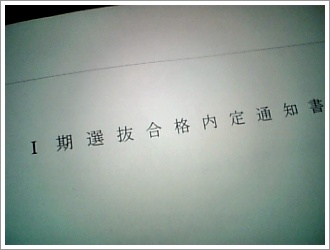 I 期選抜合格内定通知書